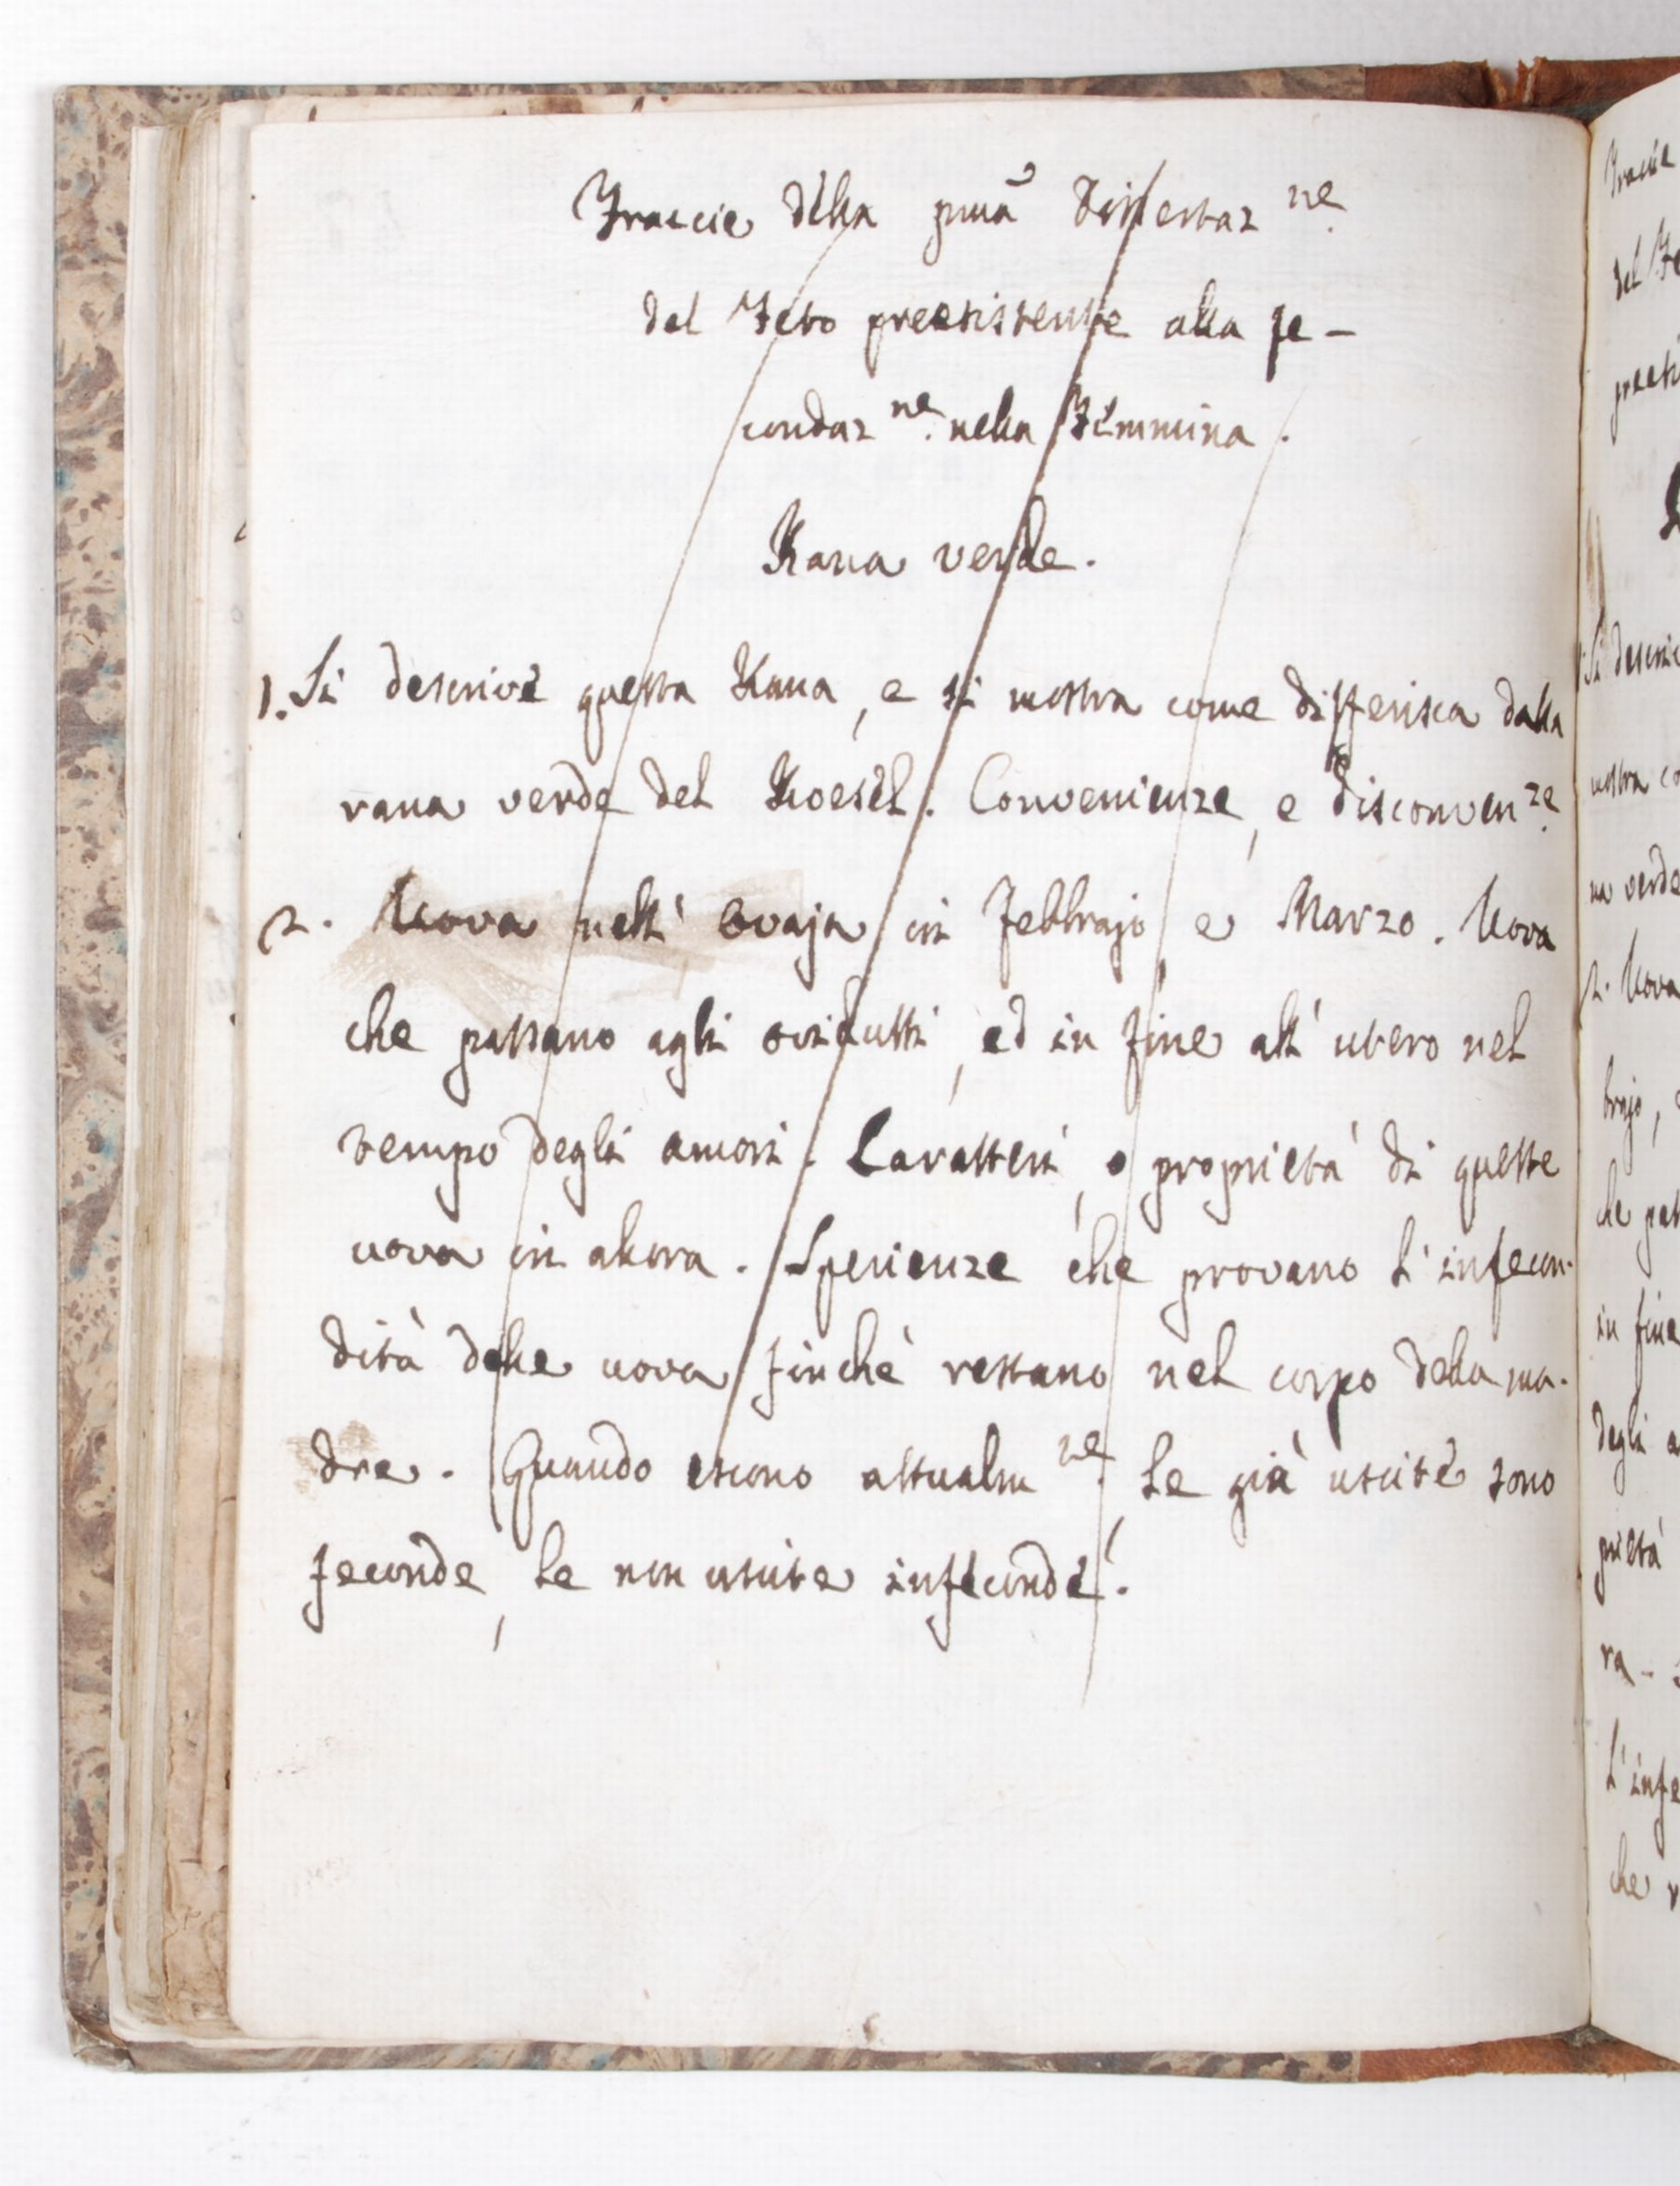 Traccie della pma Dissertaz.ne
del Feto preesistente alla fe-
condaz.ne nella Femmina.
Rana verde.
1. Si descrive questa Rana, e si mostra come differisca dalla
rana verde del Roesel. Convenienze, e disconven.ze
2. Uova nell' Ovaja in Febbrajo e Marzo. Uova
che passano agli ovidutti, ed in fine all' utero nel
tempo degli amori. Caratteri, o proprietà di queste
uova in allora. Sperienze che provano l' infecon-
dità delle uova finchè restano nel corpo della ma-
dre. Quando escono attualm.te, le già uscite sono
feconde, le non uscite infeconde.
Traccie
del Fe
preesi
1. Si descri
mostra co
na verde
2. Uova
brajo,
che pas
in fine
degli a
prietà
ra.
l' infe
che